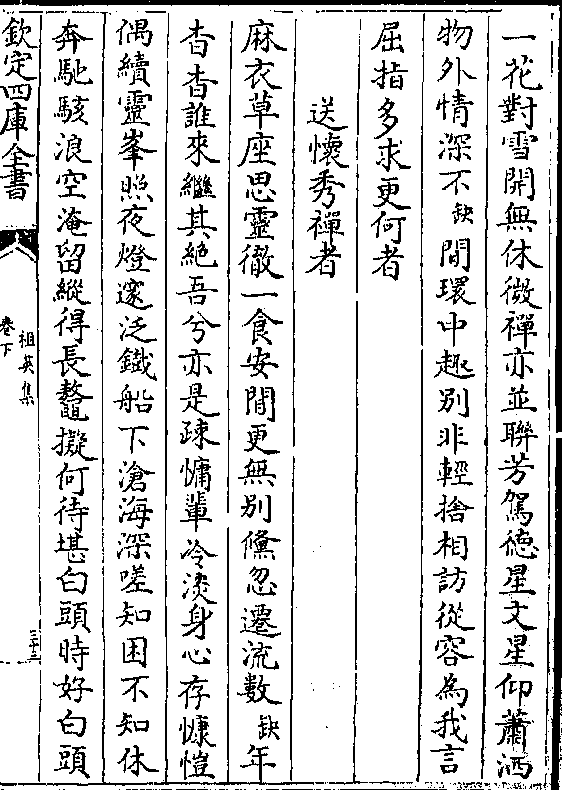 一花對雪開無休微禪亦並聯芳駕德星文星仰蕭洒
物外情深不缺間環中趣別非輕捨相訪從容為我言
屈指多求更何者
送懷秀禪者
麻衣草座思靈徹一食安閒更無別儵忽遷流數缺年
杳杳誰來繼其絶吾兮亦是疎慵輩冷淡身心存慷愷
偶續靈峯照夜燈邃泛鐵船下滄海深嗟知困不知休
奔馳駭浪空淹留縱得長鼇擬何待堪白頭時好白頭
欽定四庫全書
祖英集
卷下
三十三